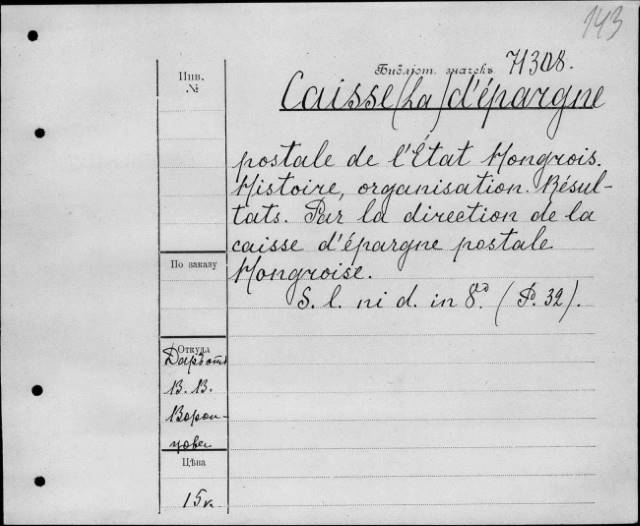 143
Библіот. значекъ 71308.
Инв.
№
Caisse (La) d'épargne
postale de l'État Hongrois.
Histoire, organisation. Résul-
tats. Par la direction de la
caisse d'épargne postale
Hongroise.
S. l. ni d. in 8º. (P. 32).
По заказу
Откуда
Даръ отъ
В. В.
Ворон-
цова
Цѣна
15 к